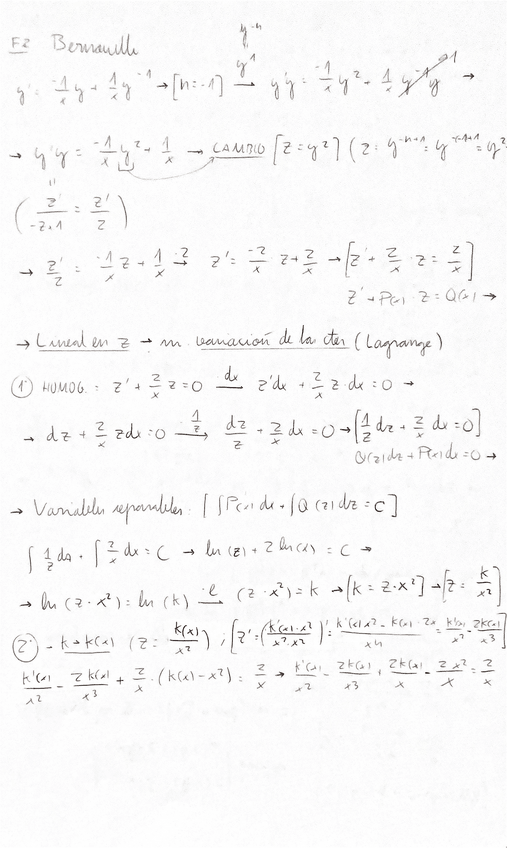 y^-n
F2 Bernouille y^1
y' = -1/x y + 1/x y^-1 → [n=-1] → y'y = -1/x y² + 1/x y^-1 y →
→ y'y = -1/x y² + 1/x → CAMBIO [z = y²] (z = y^-n+1 = y^-(-1)+1 = y²
"
(z'/-z+1 = z'/2)
→ z'/2 = -1/x z + 1/x →·2 z' = -2/x z + 2/x → [z' + 2/x · z = 2/x]
z' + P(x) · z = Q(x) →
→ Lineal en z → m. variación de la cter (Lagrange)
① HOMOG. = z' + 2/x z = 0 →dx z'dx + 2/x z · dx = 0 →
→ dz + 2/x z dx = 0 →1/z dz/z + 2/x dx = 0 → [1/z dz + 2/x dx = 0]
Q(z) dz + P(x) dx = 0 →
→ Variables separables. [∫P(x) dx + ∫Q(z) dz = C]
∫ 1/z dz + ∫ 2/x dx = C → ln(z) + 2 ln(x) = C →
→ ln(z · x²) = ln(k) →e (z · x²) = k → [k = z · x²] → [z = k/x²]
② - k → k(x) (z = k(x)/x²) ; [z' = (k'(x) · x²/x² · x²)' = k'(x) x² - k(x) · 2x/x4 = k'(x)/x² - 2k(x)/x3]
k'(x)/x² - 2k(x)/x3 + 2/x · (k(x) - x²) = 2/x → k'(x)/x² - 2k(x)/x3 + 2k(x)/x - 2x²/x = 2/x